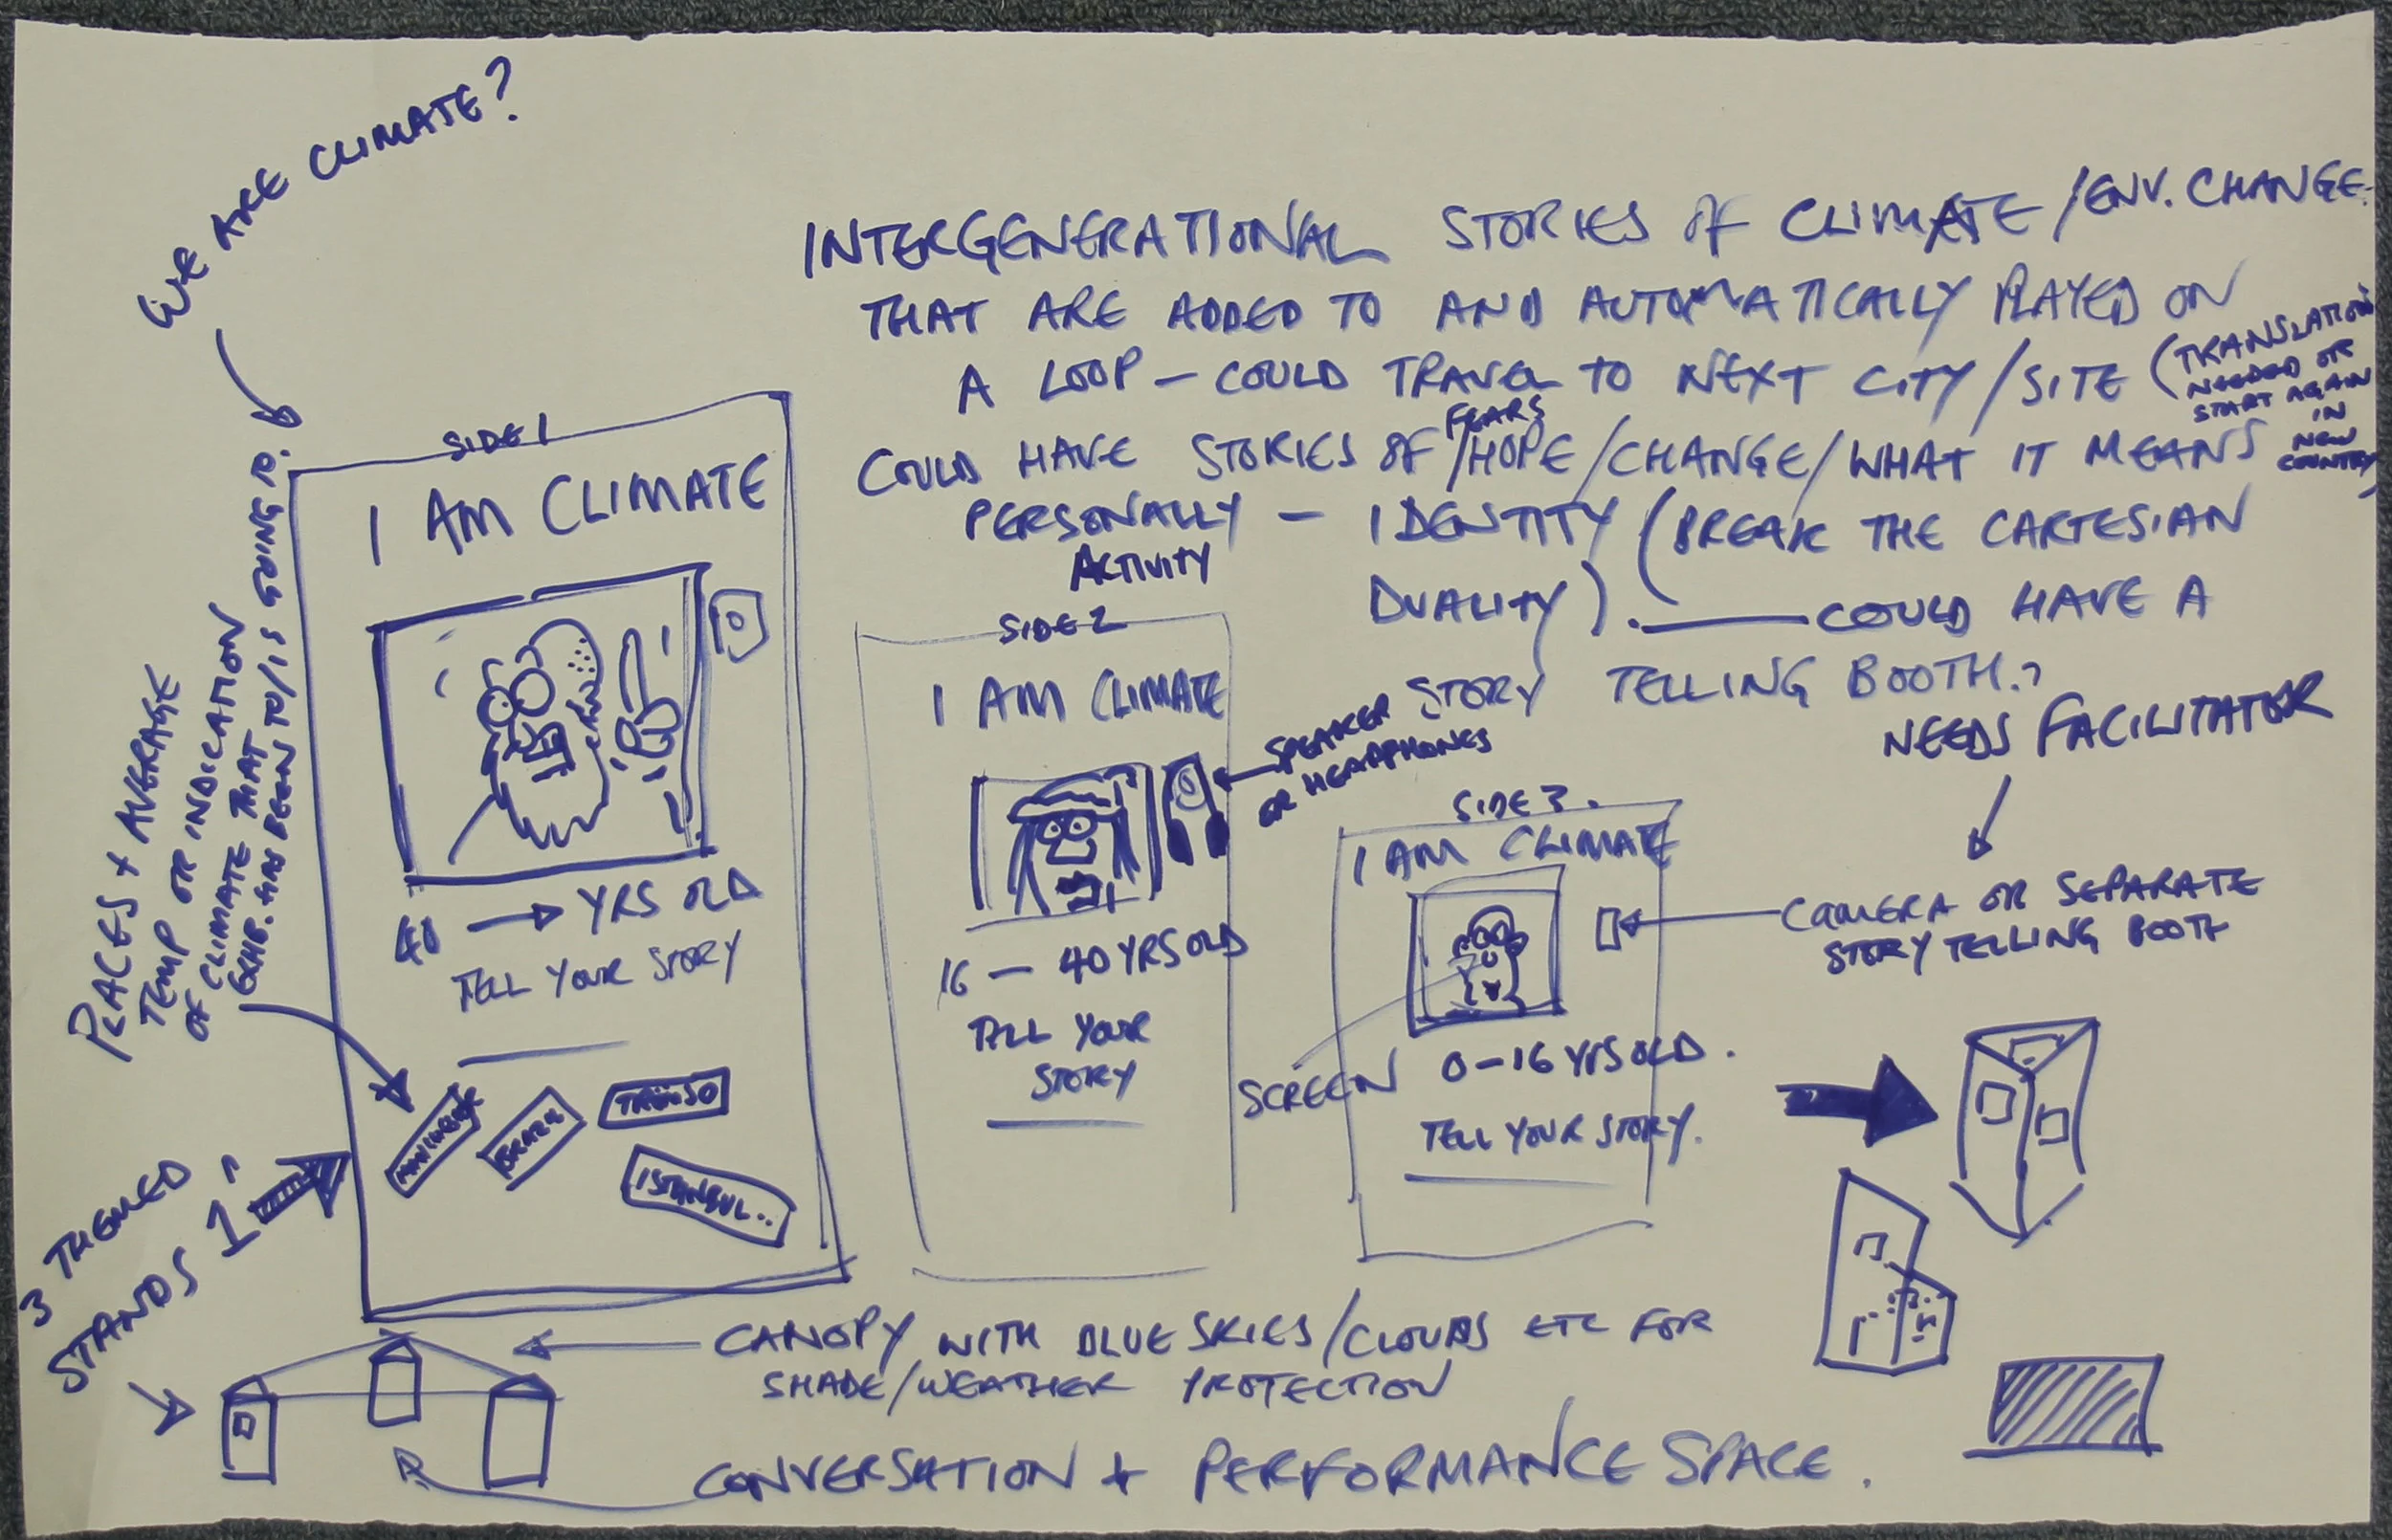 WE ARE CLIMATE?
INTERGENERATIONAL STORIES OF CLIMATE/ENV. CHANGE.
THAT ARE ADDED TO AND AUTOMATICALLY PLAYED ON
A LOOP – COULD TRAVEL TO NEXT CITY/SITE (TRANSLATION
NEEDED OR
START AGAIN
IN
NEW
COUNTRY)
FEARS
COULD HAVE STORIES OF /HOPE/CHANGE/WHAT IT MEANS
PERSONALLY – IDENTITY (BREAK THE CARTESIAN
DUALITY). — COULD HAVE A
STORY TELLING BOOTH.?
NEEDS FACILITATOR
CAMERA OR SEPARATE
STORY TELLING BOOTH
SIDE 1
I AM CLIMATE
40 → YRS OLD
TELL YOUR STORY
BRAZIL
TROMSO
ISTANBUL..
PLACES + AVERAGE
TEMP OR INDICATION
OF CLIMATE THAT
EXHIB. HAS BEEN TO/IS GOING TO.
ACTIVITY
SIDE 2
I AM CLIMATE
SPEAKER
OR HEADPHONES
16 – 40 YRS OLD
TELL YOUR
STORY
SIDE 3.
I AM CLIMATE
SCREEN
0–16 YRS OLD.
TELL YOUR STORY.
3 THEMED
STANDS 1"
CANOPY WITH BLUE SKIES/CLOUDS ETC FOR
SHADE/WEATHER PROTECTION
CONVERSATION + PERFORMANCE SPACE.